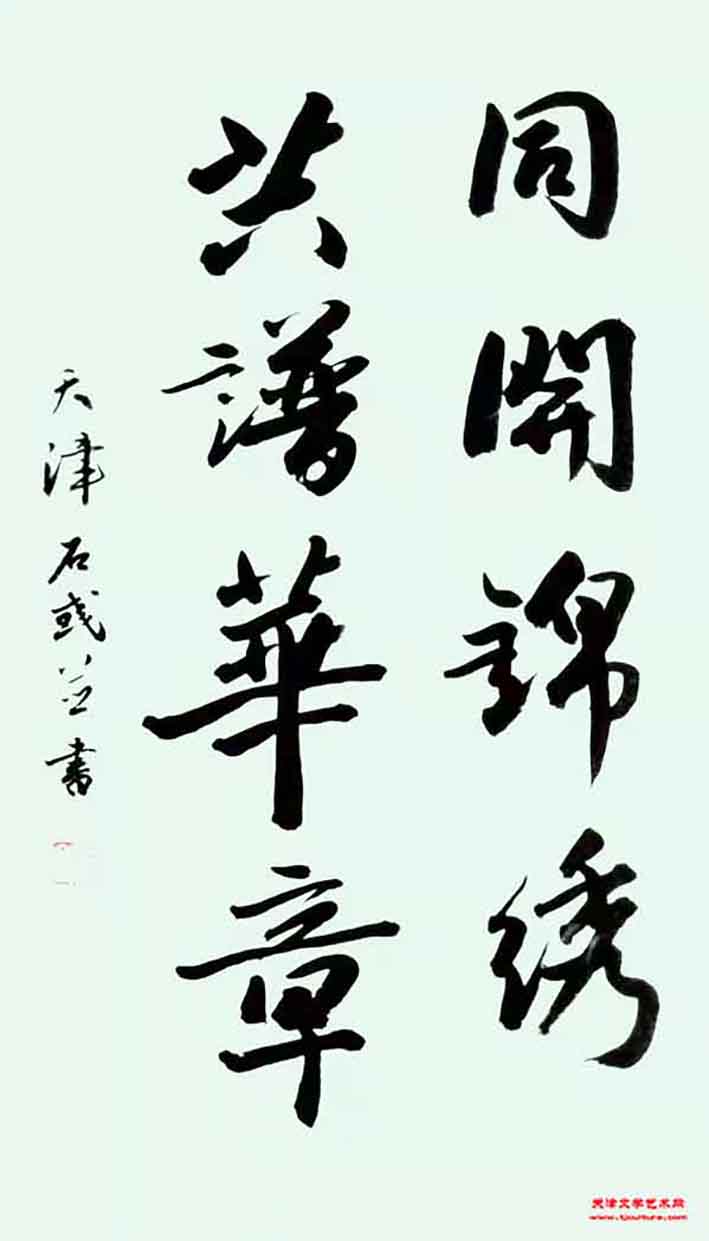 同開錦绣
共譜華章
天津石彧並書
天津文学艺术网
www.tjculture.com